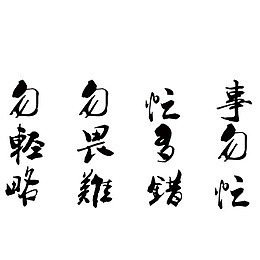 事勿忙
忙多錯
勿畏難
勿輕略